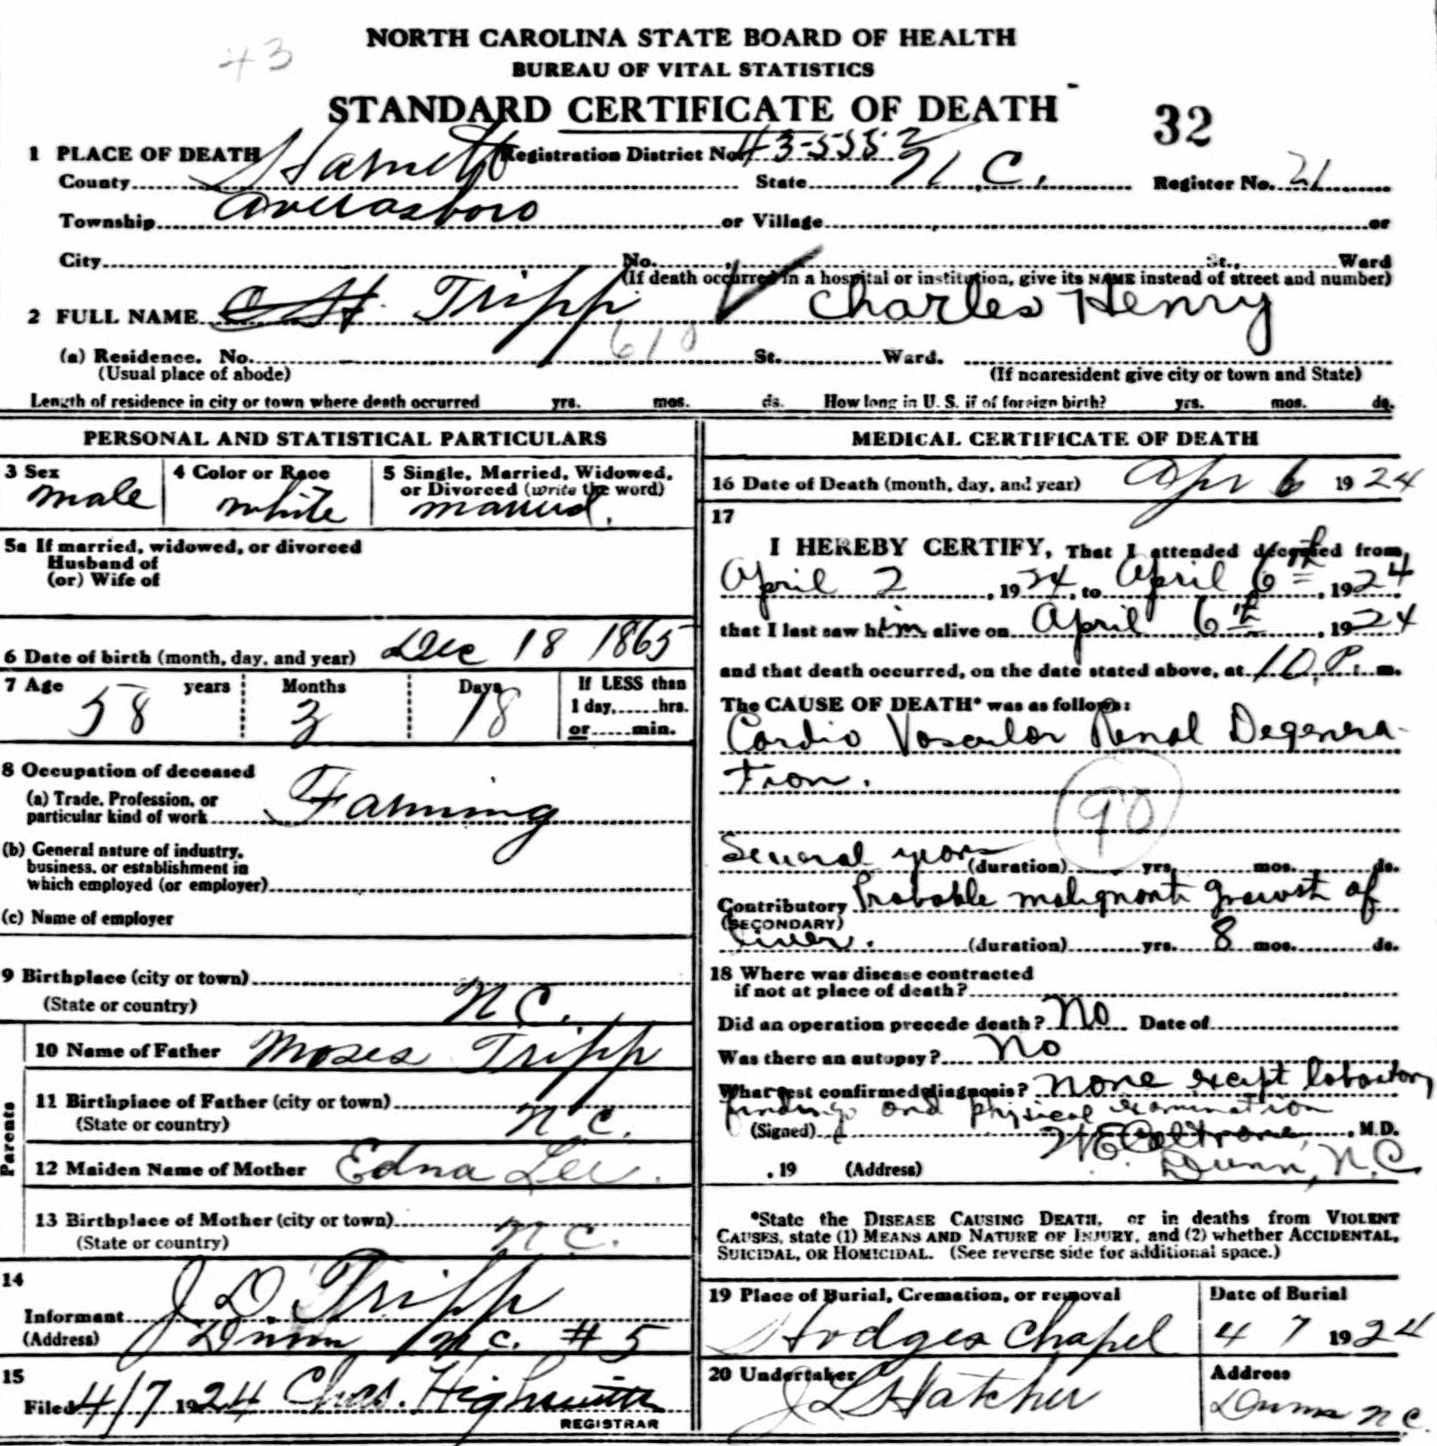 43
NORTH CAROLINA STATE BOARD OF HEALTH
BUREAU OF VITAL STATISTICS
STANDARD CERTIFICATE OF DEATH
32
1 PLACE OF DEATH Registration District No. 43-5552
County Harnett State N.C. Register No. 21
Township Averasboro or Village or
City No. St., Ward
(If death occurred in a hospital or institution, give its NAME instead of street and number)
2 FULL NAME C H Tripp Charles Henry
610
(a) Residence. No. St. Ward.
(Usual place of abode) (If nonresident give city or town and State)
Length of residence in city or town where death occurred yrs. mos. ds. How long in U. S. if of foreign birth? yrs. mos. ds.
PERSONAL AND STATISTICAL PARTICULARS
3 Sex 4 Color or Race 5 Single, Married, Widowed,
or Divorced (write the word)
male white married.
5a If married, widowed, or divorced
Husband of
(or) Wife of
6 Date of birth (month, day, and year) Dec 18 1865
7 Age years Months Days If LESS than
58 3 18 1 day, hrs.
or min.
8 Occupation of deceased
(a) Trade, Profession, or
particular kind of work Farming
(b) General nature of industry,
business, or establishment in
which employed (or employer)
(c) Name of employer
9 Birthplace (city or town)
(State or country) N C.
Parents
10 Name of Father Moses Tripp
11 Birthplace of Father (city or town)
(State or country) N C.
12 Maiden Name of Mother Edna Lee.
13 Birthplace of Mother (city or town)
(State or country) N C.
14
Informant J D. Tripp
(Address) Dunn N C. #5
15
Filed 4/7 1924 Chas. Highsmith
REGISTRAR
MEDICAL CERTIFICATE OF DEATH
16 Date of Death (month, day, and year) Apr 6 1924
17
I HEREBY CERTIFY, That I attended deceased from
April 2, 1924, to April 6th, 1924
that I last saw him alive on April 6th, 1924
and that death occurred, on the date stated above, at 10 P. m.
The CAUSE OF DEATH* was as follows:
Cardio Vascular Renal Degenera-
tion.
90
Several years (duration) yrs. mos. ds.
Contributory Probable malignant growth of
(SECONDARY)
liver. (duration) yrs. 8 mos. ds.
18 Where was disease contracted
if not at place of death?
Did an operation precede death? No Date of
Was there an autopsy? No
What test confirmed diagnosis? none except laboratory
findings and physical examination
(Signed) , M.D.
, 19 (Address) Dunn, N.C.
*State the DISEASE CAUSING DEATH, or in deaths from VIOLENT
CAUSES, state (1) MEANS AND NATURE OF INJURY, and (2) whether ACCIDENTAL,
SUICIDAL, OR HOMICIDAL. (See reverse side for additional space.)
19 Place of Burial, Cremation, or removal Date of Burial
Hodges Chapel 4 7 1924
20 Undertaker Address
J L Hatcher Dunn N C.